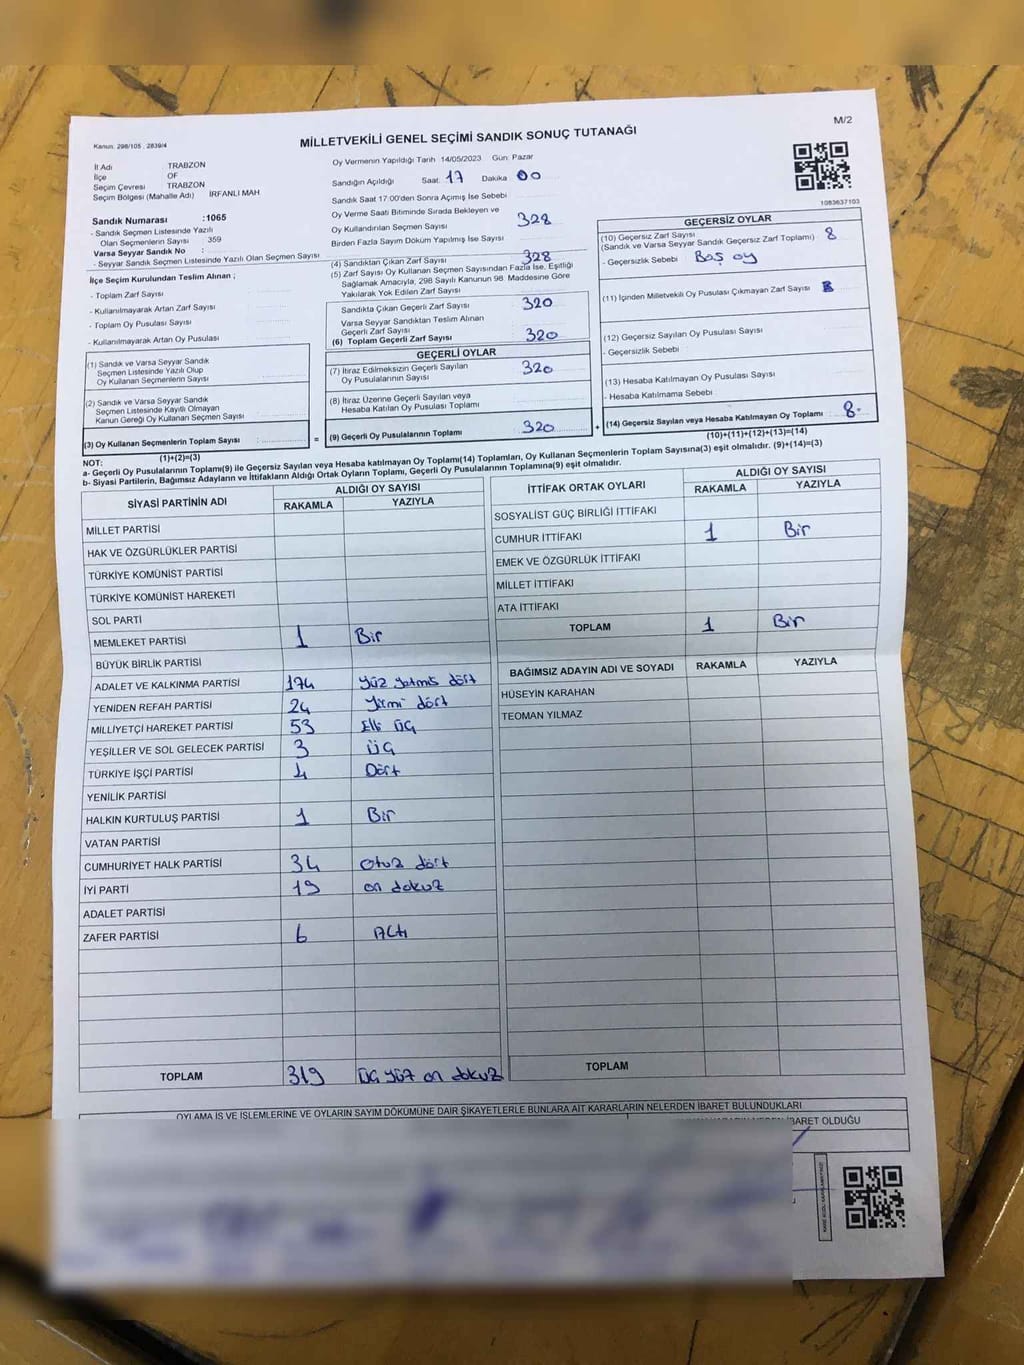 M/2
Kanun. 298/105 , 2839/4
MİLLETVEKİLİ GENEL SEÇİMİ SANDIK SONUÇ TUTANAĞI
İl Adı TRABZON
İlçe OF
Seçim Çevresi TRABZON
Seçim Bölgesi (Mahalle Adı) İRFANLI MAH
Sandık Numarası :1065
- Sandık Seçmen Listesinde Yazılı
Olan Seçmenlerin Sayısı 359
Varsa Seyyar Sandık No :
- Seyyar Sandık Seçmen Listesinde Yazılı Olan Seçmen Sayısı
İlçe Seçim Kurulundan Teslim Alınan ;
- Toplam Zarf Sayısı
- Kullanılmayarak Artan Zarf Sayısı
- Toplam Oy Pusulası Sayısı
- Kullanılmayarak Artan Oy Pusulası
(1) Sandık ve Varsa Seyyar Sandık
Seçmen Listesinde Yazılı Olup
Oy Kullanan Seçmenlerin Sayısı
(2) Sandık ve Varsa Seyyar Sandık
Seçmen Listesinde Kayıtlı Olmayan
Kanun Gereği Oy Kullanan Seçmen Sayısı
(3) Oy Kullanan Seçmenlerin Toplam Sayısı
(1)+(2)=(3)
Oy Vermenin Yapıldığı Tarih 14/05/2023 Gün: Pazar
Sandığın Açıldığı Saat: 17 Dakika 00
Sandık Saat 17:00'den Sonra Açımış İse Sebebi
Oy Verme Saati Bitiminde Sırada Bekleyen ve
Oy Kullandırılan Seçmen Sayısı 328
Birden Fazla Sayım Döküm Yapılmış İse Sayısı
(4) Sandıktan Çıkan Zarf Sayısı 328
(5) Zarf Sayısı Oy Kullanan Seçmen Sayısından Fazla İse, Eşitliği
Sağlamak Amacıyla, 298 Sayılı Kanunun 98. Maddesine Göre
Yakılarak Yok Edilen Zarf Sayısı
Sandıkta Çıkan Geçerli Zarf Sayısı 320
Varsa Seyyar Sandıktan Teslim Alınan
Geçerli Zarf Sayısı
(6) Toplam Geçerli Zarf Sayısı 320
GEÇERLİ OYLAR
(7) İtiraz Edilmeksizin Geçerli Sayılan
Oy Pusulalarının Sayısı 320
(8) İtiraz Üzerine Geçerli Sayılan veya
Hesaba Katılan Oy Pusulası Toplamı
= (9) Geçerli Oy Pusulalarının Toplamı 320 +
1083637103
GEÇERSİZ OYLAR
(10) Geçersiz Zarf Sayısı 8
(Sandık ve Varsa Seyyar Sandık Geçersiz Zarf Toplamı)
- Geçersizlik Sebebi Boş oy
(11) İçinden Milletvekili Oy Pusulası Çıkmayan Zarf Sayısı
(12) Geçersiz Sayılan Oy Pusulası Sayısı
- Geçersizlik Sebebi
(13) Hesaba Katılmayan Oy Pusulası Sayısı
- Hesaba Katılmama Sebebi
(14) Geçersiz Sayılan veya Hesaba Katılmayan Oy Toplamı 8
(10)+(11)+(12)+(13)=(14)
NOT:
a- Geçerli Oy Pusulalarının Toplamı(9) ile Geçersiz Sayılan veya Hesaba katılmayan Oy Toplamı(14) Toplamları, Oy Kullanan Seçmenlerin Toplam Sayısına(3) eşit olmalıdır. (9)+(14)=(3)
b- Siyasi Partilerin, Bağımsız Adayların ve İttifakların Aldığı Ortak Oyların Toplamı, Geçerli Oy Pusulalarının Toplamına(9) eşit olmalıdır.
SİYASİ PARTİNİN ADI ALDIĞI OY SAYISI
RAKAMLA YAZIYLA
MİLLET PARTİSİ
HAK VE ÖZGÜRLÜKLER PARTİSİ
TÜRKİYE KOMÜNİST PARTİSİ
TÜRKİYE KOMÜNİST HAREKETİ
SOL PARTİ
MEMLEKET PARTİSİ 1 Bir
BÜYÜK BİRLİK PARTİSİ
ADALET VE KALKINMA PARTİSİ 174 Yüz yetmiş dört
YENİDEN REFAH PARTİSİ 24 Yirmi dört
MİLLİYETÇİ HAREKET PARTİSİ 53 Elli üç
YEŞİLLER VE SOL GELECEK PARTİSİ 3 Üç
TÜRKİYE İŞÇİ PARTİSİ 4 Dört
YENİLİK PARTİSİ
HALKIN KURTULUŞ PARTİSİ 1 Bir
VATAN PARTİSİ
CUMHURİYET HALK PARTİSİ 34 Otuz dört
İYİ PARTİ 19 on dokuz
ADALET PARTİSİ
ZAFER PARTİSİ 6 Altı
TOPLAM 319 Üç yüz on dokuz
İTTİFAK ORTAK OYLARI ALDIĞI OY SAYISI
RAKAMLA YAZIYLA
SOSYALİST GÜÇ BİRLİĞİ İTTİFAKI
CUMHUR İTTİFAKI 1 Bir
EMEK VE ÖZGÜRLÜK İTTİFAKI
MİLLET İTTİFAKI
ATA İTTİFAKI
TOPLAM 1 Bir
BAĞIMSIZ ADAYIN ADI VE SOYADI RAKAMLA YAZIYLA
HÜSEYİN KARAHAN
TEOMAN YILMAZ
TOPLAM
OYLAMA İŞ VE İŞLEMLERİNE VE OYLARIN SAYIM DÖKÜMÜNE DAİR ŞİKAYETLERLE BUNLARA AİT KARARLARIN NELERDEN İBARET BULUNDUKLARI
İBARET OLDUĞU